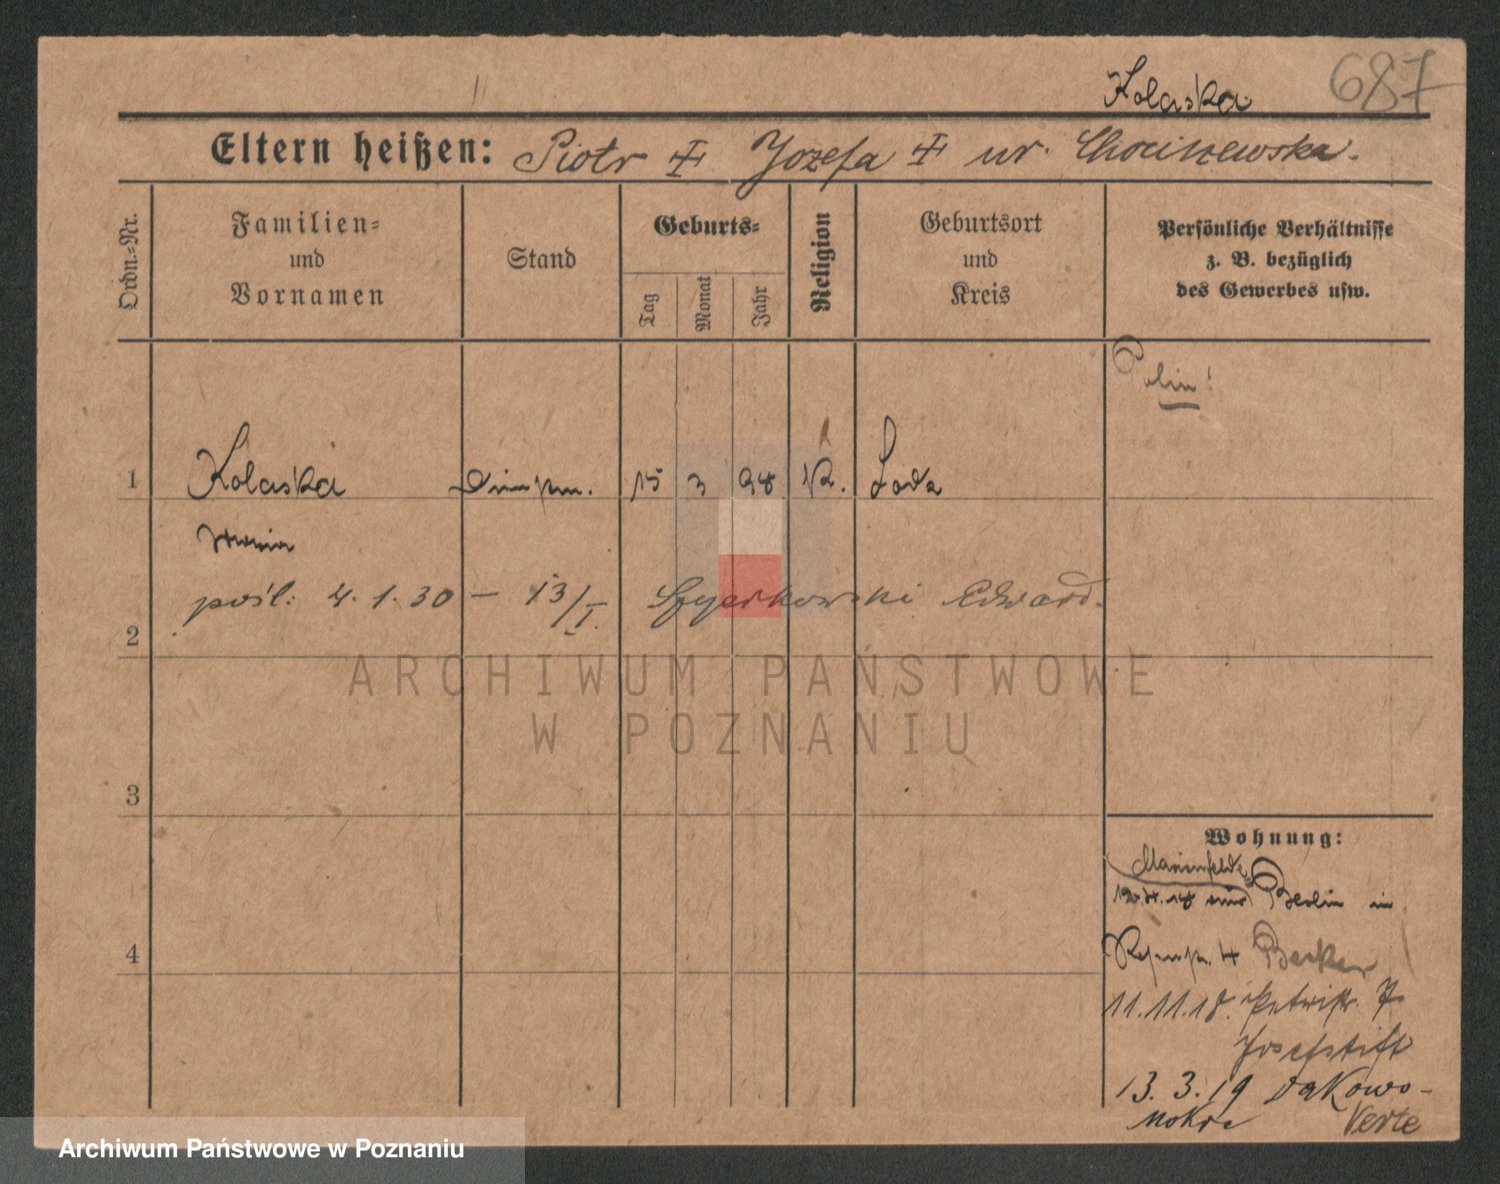 Kolaska 687
Eltern heißen: Piotr Józefa ur. Chocinewska.
Ordn.=Nr.
Familien=
und
Vornamen
Stand
Geburts=
Tag
Monat
Jahr
Religion
Geburtsort
und
Kreis
Persönliche Verhältnisse
z. B. bezüglich
des Gewerbes usw.
Polin!
1 Kolaska 15 3 98 K. Lodz
2 pośl: 4.1.30 – 13/I. Edward.
3
4
Wohnung:
Marienfelde
Berlin in
4 Becker
11.11.18. Petristr. 7
Josefstift
13.3.19 Dakowo-
mokre Verte
ARCHIWUM PAŃSTWOWE
W POZNANIU
Archiwum Państwowe w Poznaniu